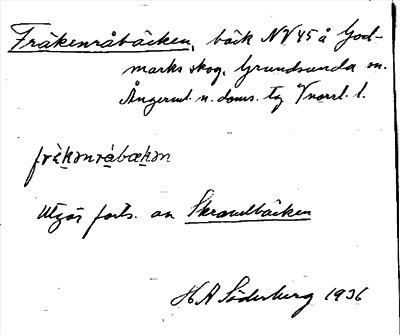 Fräkenråbäcken, bäck NV 45 å God-
marks skog, Grundsunda sn.
Ångerml. n. doms. tg Vnorrl. l.
frä̀kənråbækən
Utgör forts. av Skravelbäcken
H A Söderberg 1936